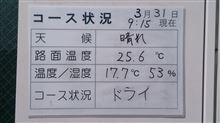 コース状況 3月31日
9:15 現在
天候 晴れ
路面温度 25.6 ℃
温度/湿度 17.7℃ 53%
コース状況 ドライ